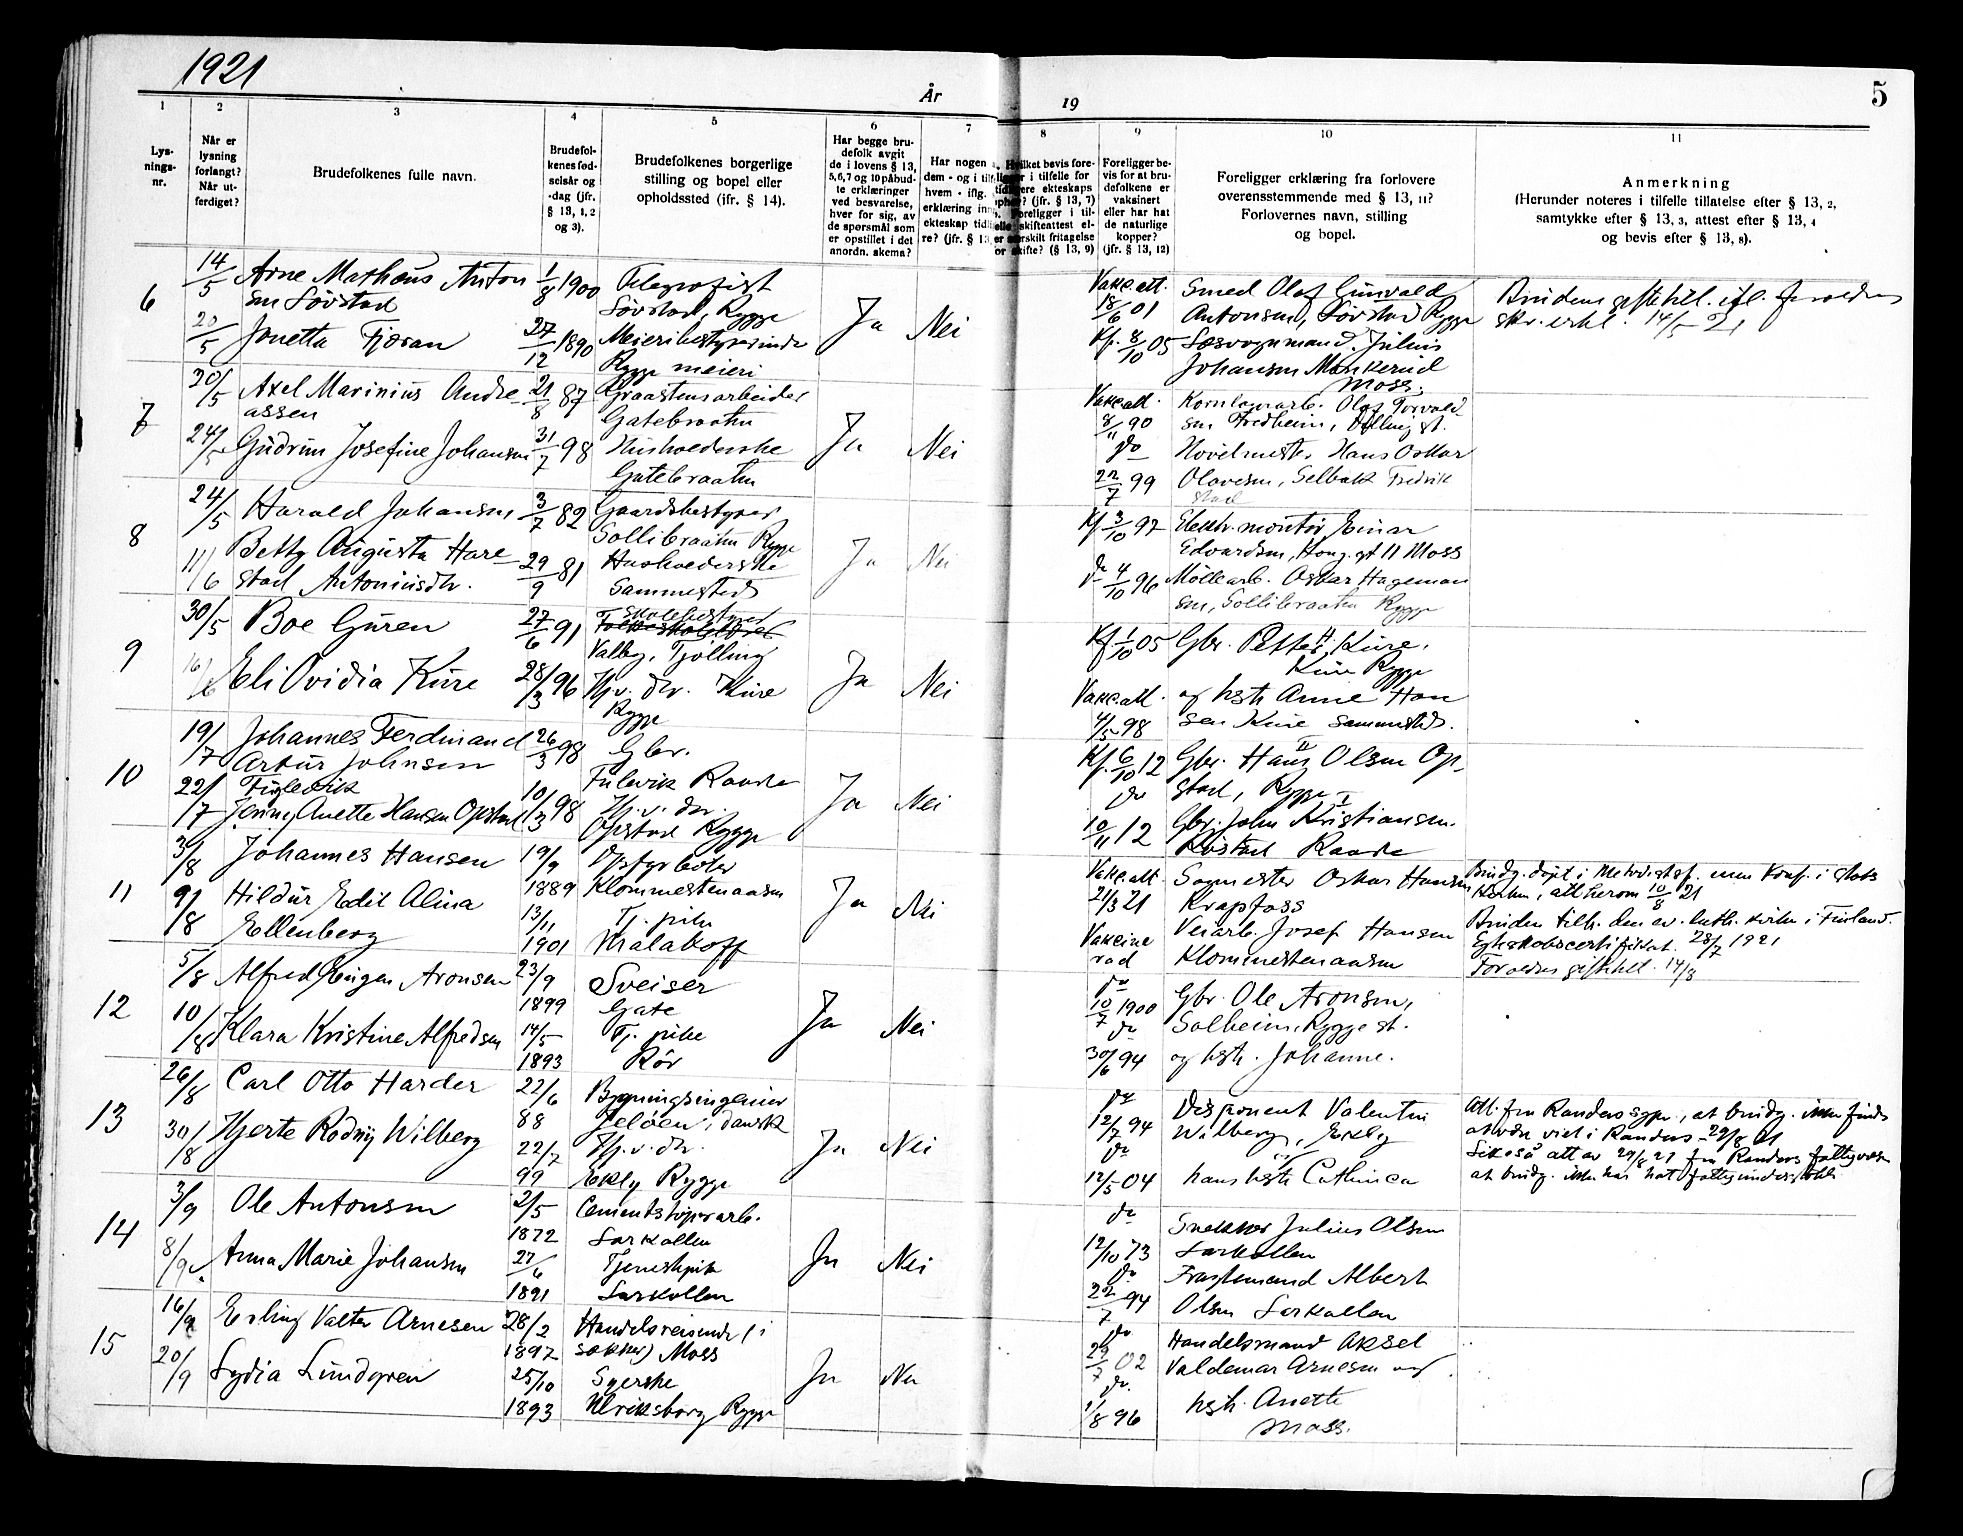 1921
År
19
5
1
2
3
4
5
6
7
8
9
10
11
Lys-
nings-
nr.
Når er
lysning
forlangt?
Når ut-
ferdiget?
Brudefolkenes fulle navn.
Brudefol-
kenes fød-
selsår og
-dag (jfr.
§ 13, 1, 2
og 3).
Brudefolkenes borgerlige
stilling og bopel eller
opholdssted (ifr. § 14).
Har begge bru-
defolk avgit
de i lovens § 13,
5, 6, 7 og 10 påbud-
te erklæringer
ved besvarelse,
hver for sig, av
de spørsmål som
er opstillet i det
anordn. skema?
Har nogen
dem - og i
hvem - iflg.
erklæring
ekteskap
re? (jfr. § 13,
Hvilket bevis fore-
i tilfelle for
ekteskaps
? (jfr. § 13, 7)
Foreligger i til-
skifteattest el-
fritagelse
skifte? (§ 13, 9)
Foreligger be-
vis for at bru-
defolkene er
vaksinert
eller har hat
de naturlige
kopper?
(jfr. § 13, 12)
Foreligger erklæring fra forlovere
overensstemmende med § 13, 11?
Forlovernes navn, stilling
og bopel.
Anmerkning
(Herunder noteres i tilfelle tillatelse efter § 13, 2,
samtykke efter § 13, 3, attest efter § 13, 4
og bevis efter § 13, 8).
6
14/5
Arne Matheus Anton
sen Sörstad
1/8 1900
Telegrafist
Sörstad, Rygge
20/5
Jonetta Fjøran
27/12 1890
Meieribestyrerinde
Rygge meieri
Ja
Nei
Vakc. att.
18/6 01
Kf. 8/10 05
Smed Olaf Gunvald
Antonsen, Sörstad Rygge
Læsvognmand. Julius
Johansen Monkerud
Moss.
Brudens giftetill. ifl. foreldres
skr. erkl. 14/5 21
7
30/5
Axel Marinius Andre-
assen
21/8 87
Graastensarbeider
Gatebraaten
24/5
Gudrun Josefine Johansen
31/7 98
Husholderske
Gatebraaten
Ja
Nei
Vakc. att.
8/11 90
do
22/7 99
Kornlagerarb. Olaf Torvald-
sen Fredheim, Dilling st.
Hövelmester Hans Oskar
Olavesen, Selbakk Fredrik
stad
8
24/5
Harald Johansen
3/7 82
Gaardsbestyrer
Sollibraaten Rygge
11/6
Betty Augusta Hare-
stad Antoniusdtr.
29/9 81
Husholderske
Sammesteds
Ja
Nei
Kf 3/10 97
do 4/10 96
Elektr. montör Einar
Edvardsen, Kong. gt 11 Moss
Möllearb. Oskar Hageman
sen, Sollibraaten Rygge
9
30/5
Boe Guren
27/6 91
Skolebestyrer
Folkeskolelærer
Valby, Tjölling
16/6
Eli Ovidia Kure
28/3 96
Hj.v. dtr. Kure
Rygge
Ja
Nei
Kf 1/10 05
Vakc. att.
4/5 98
Gbr. Petter H. Kure,
Kure Rygge
og hstr. Anne Han
sen Kure sammesteds.
10
19/7
Johannes Ferdinand
Artur Johnsen
Fuglevik
26/3 98
Gbr.
Fulevik Raade
22/7
Jenny Anette Hansen Opstad
10/3 98
Hj.v. dtr.
Opstad Rygge
Ja
Nei
Kf. 6/10 12
do
10/11 12
Gbr. Hans Olsen Op-
stad, Rygge II
Gbr. John Kristiansen I
Kostad Raade
11
3/8
Johannes Hansen
19/9
1889
Opfyrböter
Klommestenaasen
9/8
Hildur Edit Alina
Ellenberg
13/11
1901
Tj. pike
Malakoff
Ja
Nei
Vakc. att.
21/3 21
Vakcine
rad
Sagmester Oskar Hansen
Krapfoss
Veiarb. Josef Hansen
Klommestenaasen
Brudg. döpt i Metodistsf. men konf. i stats
kirken, att herom 10/8 21
Bruden tilh. den ev. luth. kirke i Finland.
Egteskabscertifikat. 28/7 1921
Foreldres giftetill. 14/3
12
5/8
Alfred Eugen Aronsen
23/9
1899
Sveiser
Gate
10/8
Klara Kristine Alfredsen
14/5
1893
Tj. pike
Rör
Ja
Nei
do
10/7 1900
do
30/6 94
Gbr. Ole Aronsen,
Solheim, Rygge st.
og hstr. Johanne.
13
26/8
Carl Otto Harder
22/6
88
Bygningsingeniør
Jelöen, dansk
30/8
Hjerte Rodny Wilberg
22/7
99
Hj.v. dtr.
Ekly Rygge
Ja
Nei
do
12/7 94
do
12/5 04
Disponent Valentin
Wilberg, Ekly
og
hans hstr. Cathinca
Att. fra Randers sogn, at brudg. ikke findes
at være viet i Randers 29/8 21
Likeså att av 29/8 21 fra Randers fattigvæsen
at brudg. ikke har hat fattigunderstött.
14
3/9
Ole Antonsen
2/5
1872
Cementstøperarb.
Larkollen
8/9
Anna Marie Johansen
27/6
1891
Tjenestepike
Larkollen
Ja
Nei
do
12/10 73
do
22/7 94
Snekker Julius Olsen
Larkollen
Fragtemand Albert
Olsen Larkollen
15
16/9
Erling Valter Arnesen
28/2
1897
Handelsreisende (i
sækker) Moss
20/9
Lydia Lundgren
25/10
1893
Syerske
Ulriksborg Rygge
Ja
Nei
do
29/7 02
do.
1/8 96
Handelsmand Aksel
Valdemar Arnesen og
hstr. Anette
Moss.